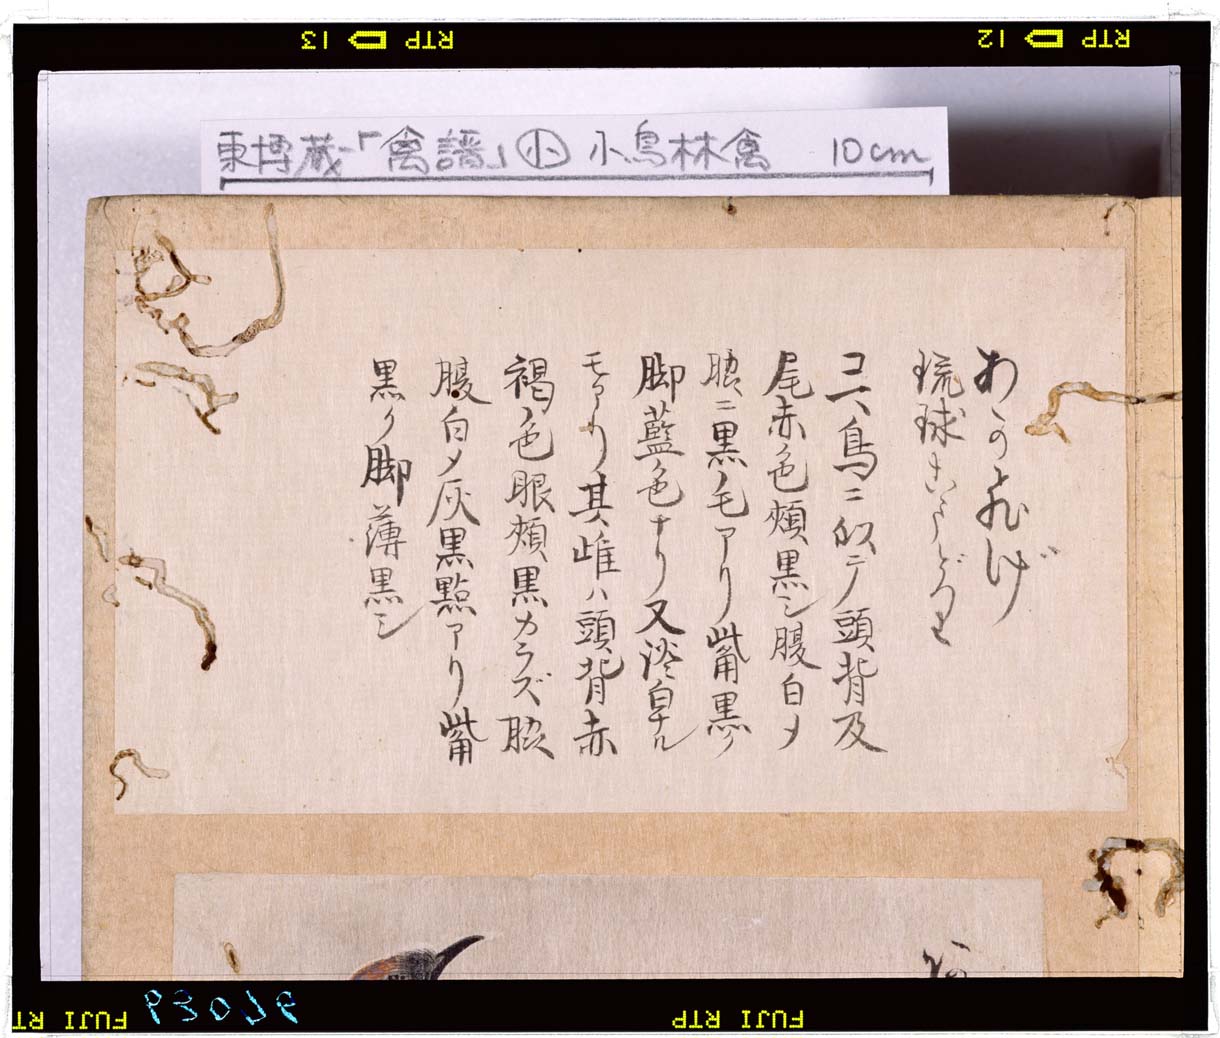 RTP 13
RTP 12
東博蔵「禽譜」小 小鳥林禽 10cm
あかひげ
琉球こまどり
コハ鳥ニ似テ頭背及
尾赤色頬黒シ腹白メ
脇ニ黒毛アリ觜黒ク
脚藍色ナリ又淡白ナル
モアリ其雌ハ頭背赤
褐色眼頬黒カラズ脇
腹白メ灰黒點アリ觜
黒ク脚薄黒シ
FUJI RTP
FUJI RT